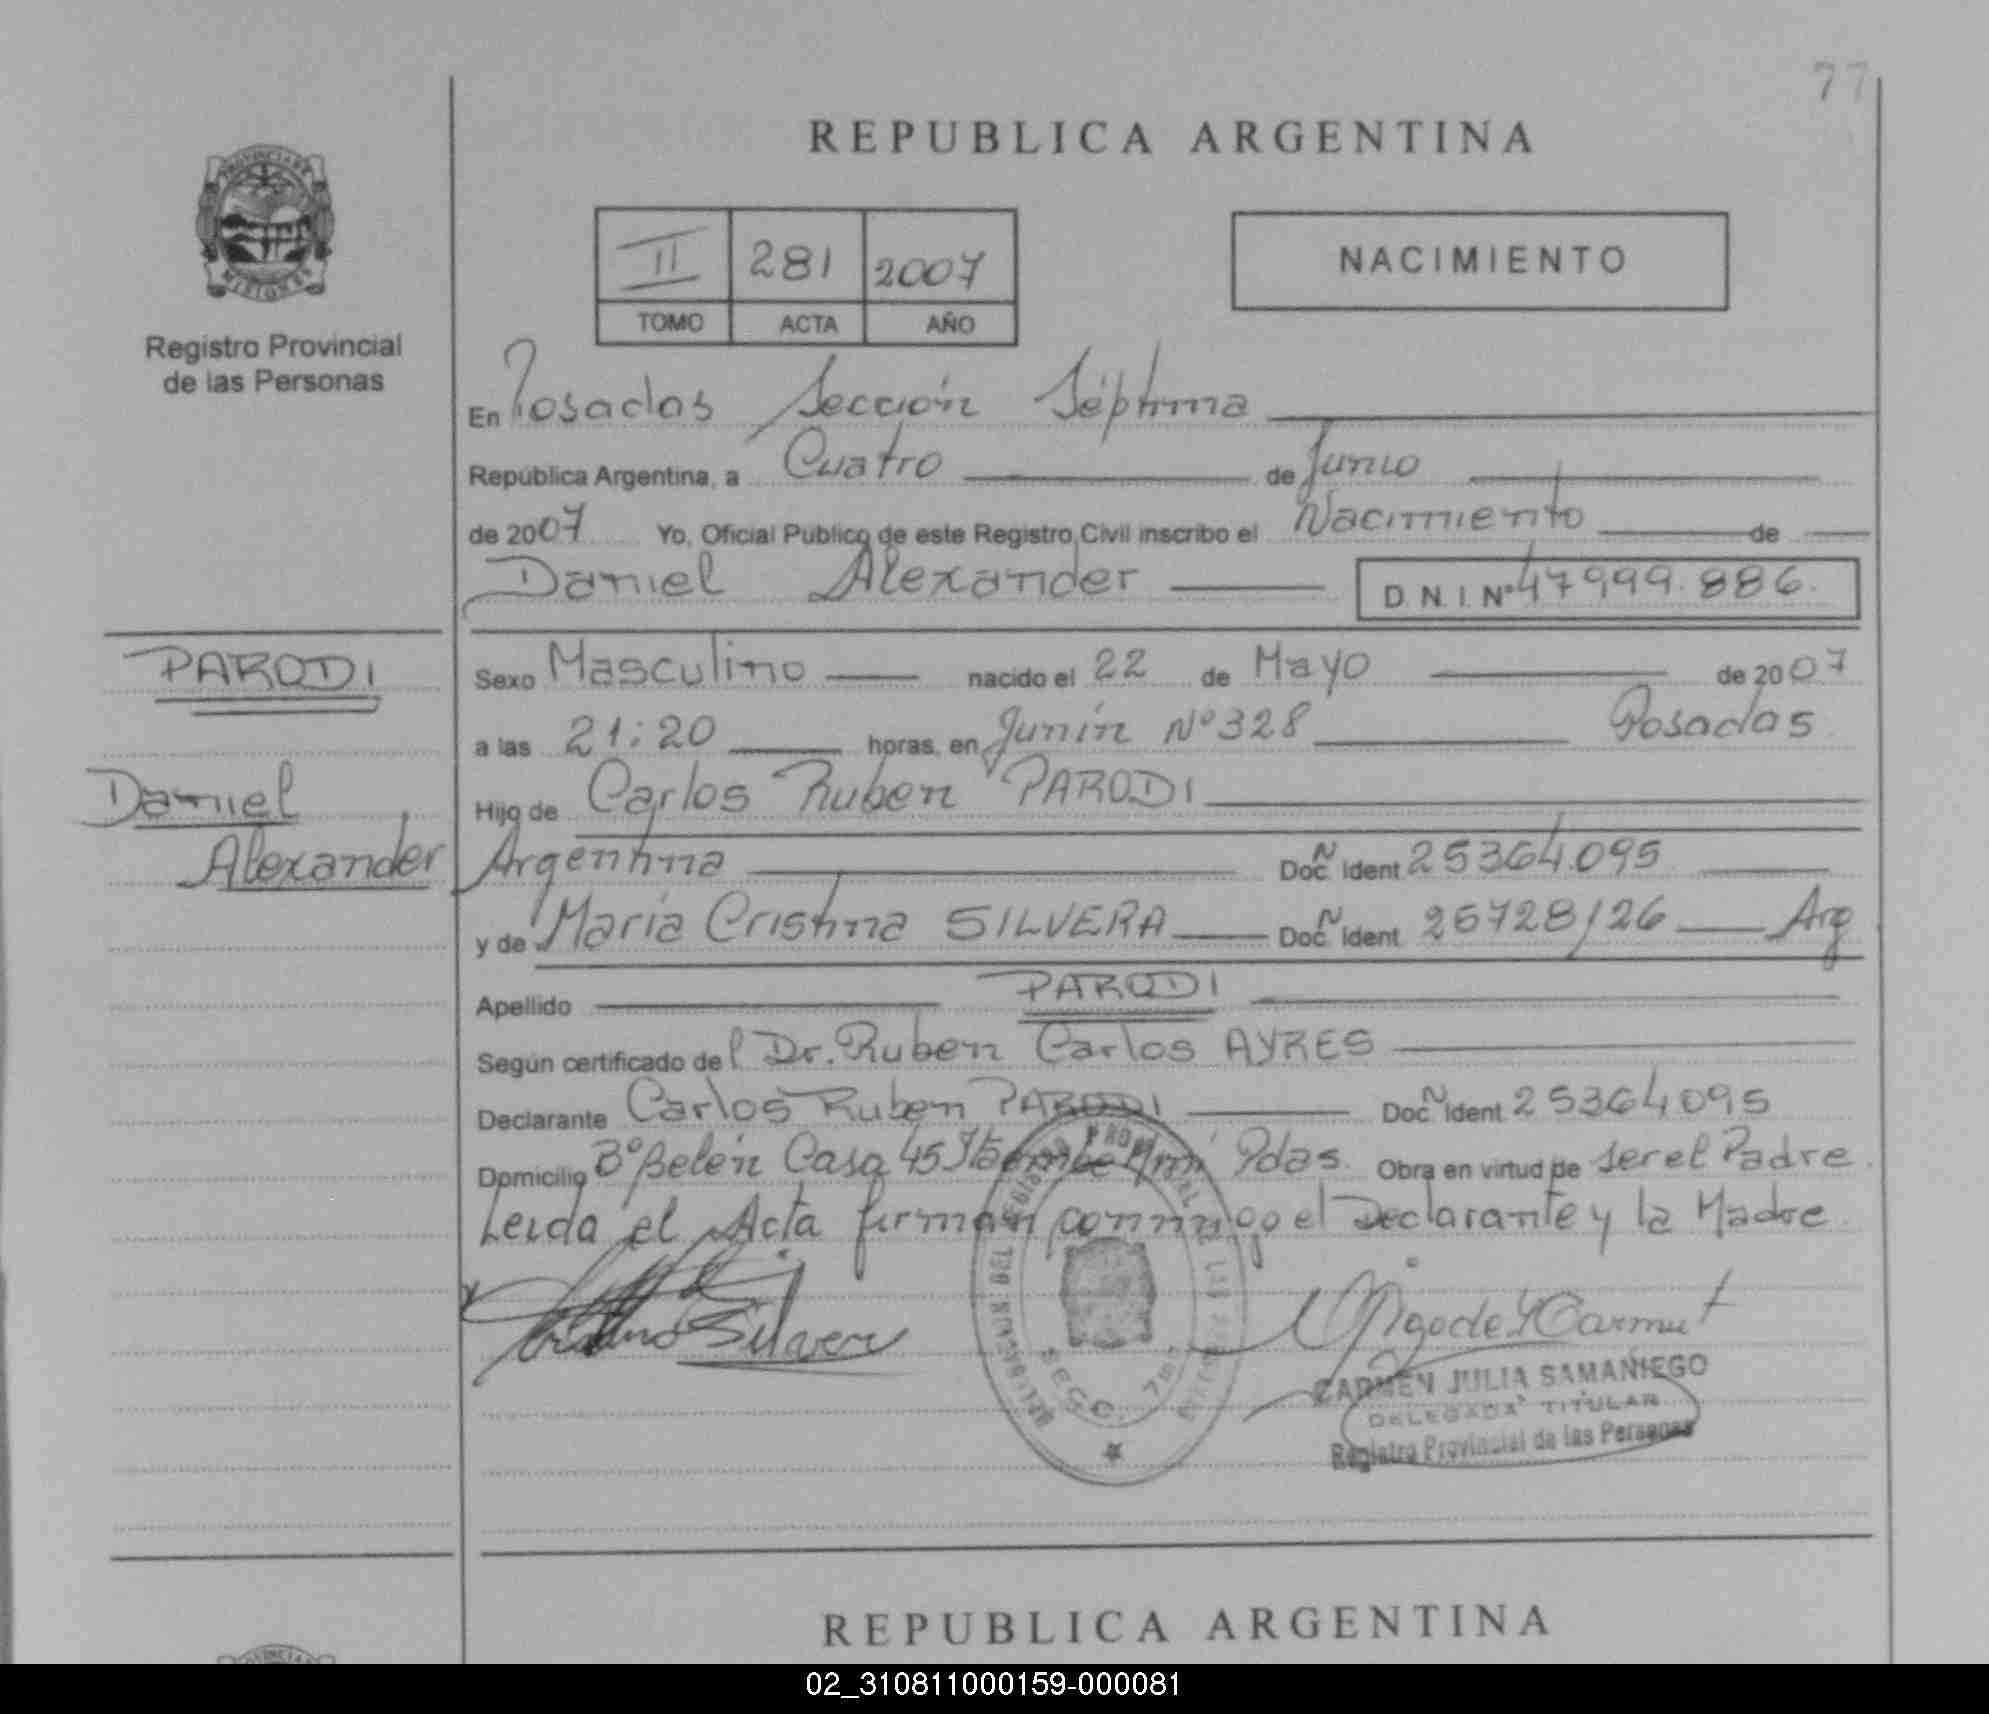 77
REPUBLICA ARGENTINA
II 281 2007
TOMO ACTA AÑO
NACIMIENTO
Registro Provincial
de las Personas
En Posadas Sección Séptima
República Argentina, a Cuatro de Junio
de 2007 Yo, Oficial Publico de este Registro Civil inscribo el Nacimiento de
Daniel Alexander D.N.I.Nº 47999.886.
PARODI
Daniel
Alexander
Sexo Masculino nacido el 22 de Mayo de 2007
a las 21:20 horas, en Junín Nº 328 Posadas
Hijo de Carlos Ruben PARODI
Argentina Doc. Ident 25364.095
y de María Cristina SILVERA Doc. Ident 25728126 Arg
Apellido PARODI
Según certificado del Dr. Ruben Carlos AYRES
Declarante Carlos Ruben PARODI Doc. Ident 25364095
Domicilio Bº Belén Casa 45 Itaembe Miní Pdas. Obra en virtud de ser el Padre.
Leida el Acta firman conmigo el Declarante y la Madre.
CARMEN JULIA SAMANIEGO
DELEGADA TITULAR
Registro Provincial de las Personas
SECC. 7ma
REPUBLICA ARGENTINA
02_310811000159-000081